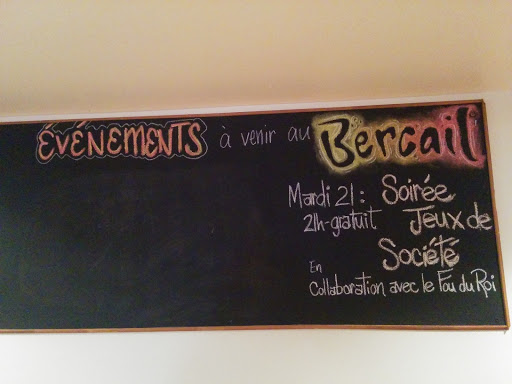 ÉVÉNEMENTS à venir au Bercail
Mardi 21 : Soirée
21h-gratuit Jeux de
Société
En
Collaboration avec le Fou du Roi